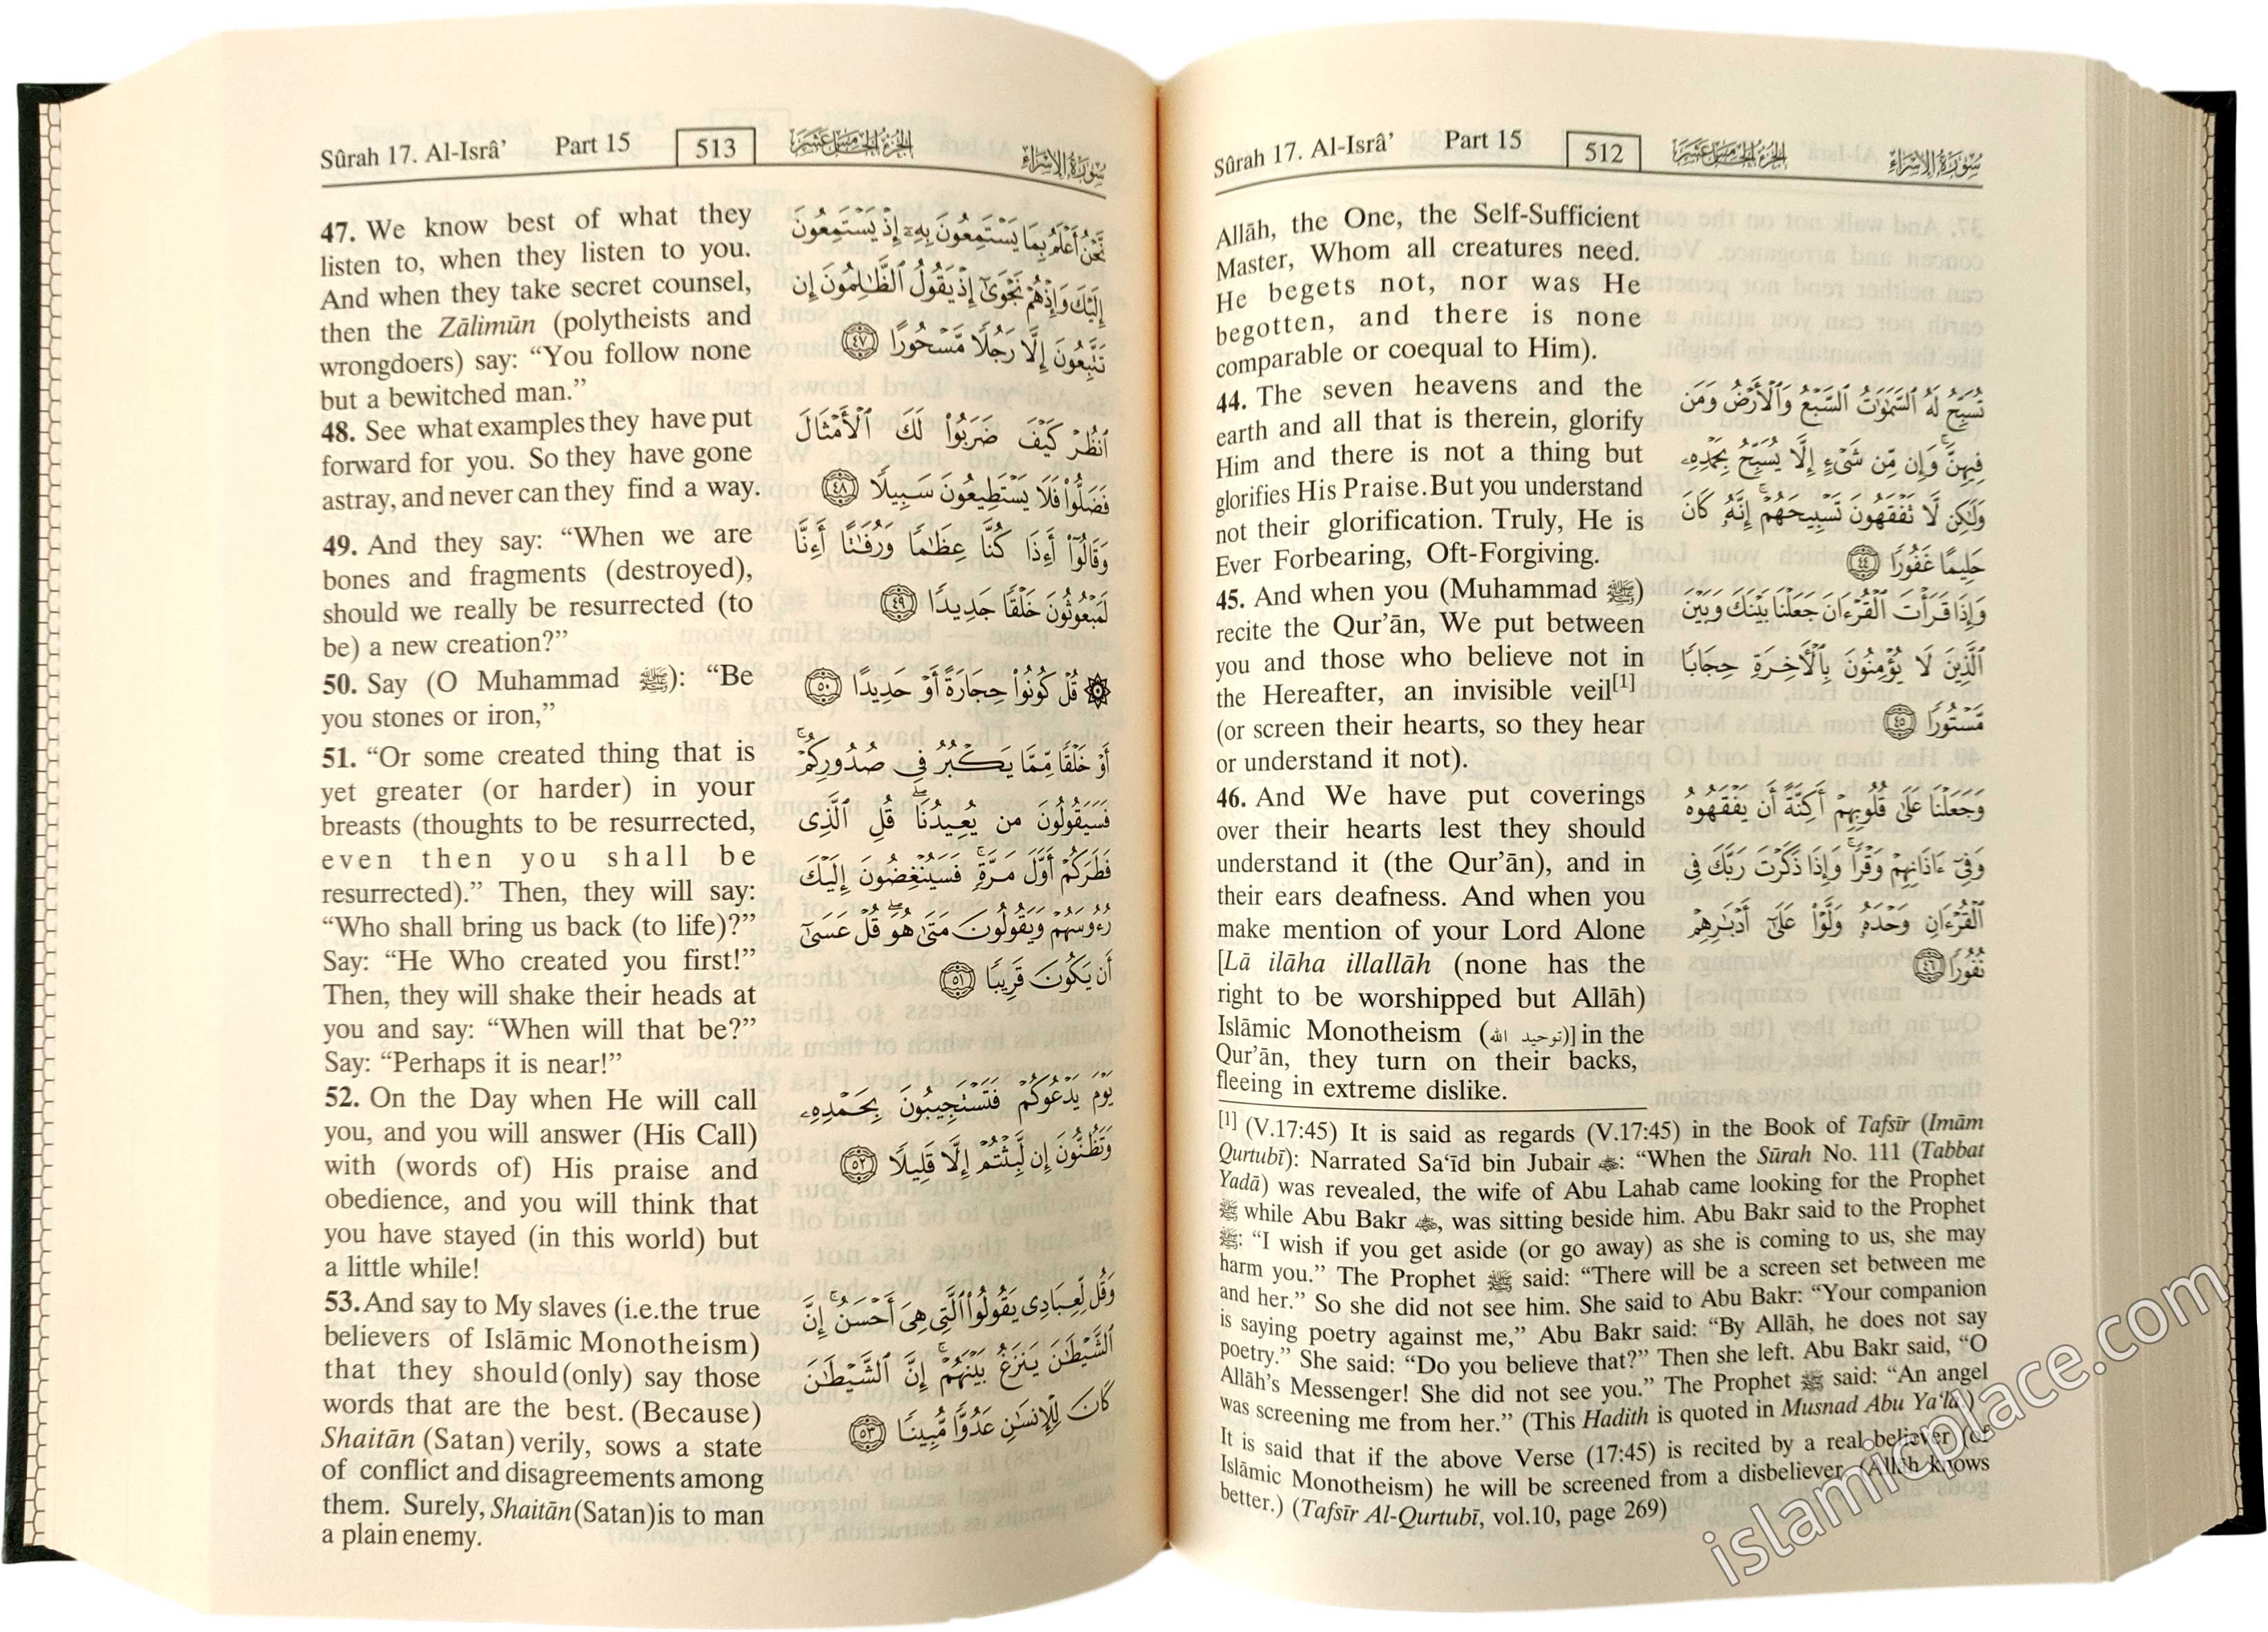 Sûrah 17. Al-Isrâ’ Part 15 512 الجزء الخامس عشر سورة الإسراء
Allāh, the One, the Self-Sufficient
Master, Whom all creatures need.
He begets not, nor was He
begotten, and there is none
comparable or coequal to Him).
44. The seven heavens and the
earth and all that is therein, glorify
Him and there is not a thing but
glorifies His Praise. But you understand
not their glorification. Truly, He is
Ever Forbearing, Oft-Forgiving.
45. And when you (Muhammad ﷺ)
recite the Qur’ān, We put between
you and those who believe not in
the Hereafter, an invisible veil[1]
(or screen their hearts, so they hear
or understand it not).
46. And We have put coverings
over their hearts lest they should
understand it (the Qur’ān), and in
their ears deafness. And when you
make mention of your Lord Alone
[Lā ilāha illallāh (none has the
right to be worshipped but Allāh)
Islāmic Monotheism (توحيد الله)] in the
Qur’ān, they turn on their backs,
fleeing in extreme dislike.
تُسَبِّحُ لَهُ ٱلسَّمَٰوَٰتُ ٱلسَّبْعُ وَٱلْأَرْضُ وَمَن
فِيهِنَّ ۚ وَإِن مِّن شَىْءٍ إِلَّا يُسَبِّحُ بِحَمْدِهِۦ
وَلَٰكِن لَّا تَفْقَهُونَ تَسْبِيحَهُمْ ۗ إِنَّهُۥ كَانَ
حَلِيمًا غَفُورًا ٤٤
وَإِذَا قَرَأْتَ ٱلْقُرْءَانَ جَعَلْنَا بَيْنَكَ وَبَيْنَ
ٱلَّذِينَ لَا يُؤْمِنُونَ بِٱلْـَٔاخِرَةِ حِجَابًا
مَّسْتُورًا ٤٥
وَجَعَلْنَا عَلَىٰ قُلُوبِهِمْ أَكِنَّةً أَن يَفْقَهُوهُ
وَفِىٓ ءَاذَانِهِمْ وَقْرًا ۚ وَإِذَا ذَكَرْتَ رَبَّكَ فِى
ٱلْقُرْءَانِ وَحْدَهُۥ وَلَّوْا۟ عَلَىٰٓ أَدْبَٰرِهِمْ
نُفُورًا ٤٦
[1] (V.17:45) It is said as regards (V.17:45) in the Book of Tafsīr (Imām
Qurtubī): Narrated Sa‘īd bin Jubair: “When the Sūrah No. 111 (Tabbat
Yadā) was revealed, the wife of Abu Lahab came looking for the Prophet
ﷺ while Abu Bakr, was sitting beside him. Abu Bakr said to the Prophet
ﷺ: “I wish if you get aside (or go away) as she is coming to us, she may
harm you.” The Prophet ﷺ said: “There will be a screen set between me
and her.” So she did not see him. She said to Abu Bakr: “Your companion
is saying poetry against me,” Abu Bakr said: “By Allāh, he does not say
poetry.” She said: “Do you believe that?” Then she left. Abu Bakr said, “O
Allāh’s Messenger! She did not see you.” The Prophet ﷺ said: “An angel
was screening me from her.” (This Hadith is quoted in Musnad Abu Ya‘la.)
It is said that if the above Verse (17:45) is recited by a real believer (of
Islāmic Monotheism) he will be screened from a disbeliever. (Allāh knows
better.) (Tafsīr Al-Qurtubī, vol.10, page 269)
Sûrah 17. Al-Isrâ’ Part 15 513 الجزء الخامس عشر سورة الإسراء
47. We know best of what they
listen to, when they listen to you.
And when they take secret counsel,
then the Zālimūn (polytheists and
wrongdoers) say: “You follow none
but a bewitched man.”
48. See what examples they have put
forward for you. So they have gone
astray, and never can they find a way.
49. And they say: “When we are
bones and fragments (destroyed),
should we really be resurrected (to
be) a new creation?”
50. Say (O Muhammad ﷺ): “Be
you stones or iron,”
51. “Or some created thing that is
yet greater (or harder) in your
breasts (thoughts to be resurrected,
even then you shall be
resurrected).” Then, they will say:
“Who shall bring us back (to life)?”
Say: “He Who created you first!”
Then, they will shake their heads at
you and say: “When will that be?”
Say: “Perhaps it is near!”
52. On the Day when He will call
you, and you will answer (His Call)
with (words of) His praise and
obedience, and you will think that
you have stayed (in this world) but
a little while!
53. And say to My slaves (i.e.the true
believers of Islāmic Monotheism)
that they should (only) say those
words that are the best. (Because)
Shaitān (Satan) verily, sows a state
of conflict and disagreements among
them. Surely, Shaitān (Satan) is to man
a plain enemy.
نَّحْنُ أَعْلَمُ بِمَا يَسْتَمِعُونَ بِهِۦٓ إِذْ يَسْتَمِعُونَ
إِلَيْكَ وَإِذْ هُمْ نَجْوَىٰٓ إِذْ يَقُولُ ٱلظَّٰلِمُونَ إِن
تَتَّبِعُونَ إِلَّا رَجُلًا مَّسْحُورًا ٤٧
ٱنظُرْ كَيْفَ ضَرَبُوا۟ لَكَ ٱلْأَمْثَالَ
فَضَلُّوا۟ فَلَا يَسْتَطِيعُونَ سَبِيلًا ٤٨
وَقَالُوٓا۟ أَءِذَا كُنَّا عِظَٰمًا وَرُفَٰتًا أَءِنَّا
لَمَبْعُوثُونَ خَلْقًا جَدِيدًا ٤٩
۞ قُلْ كُونُوا۟ حِجَارَةً أَوْ حَدِيدًا ٥٠
أَوْ خَلْقًا مِّمَّا يَكْبُرُ فِى صُدُورِكُمْ ۚ
فَسَيَقُولُونَ مَن يُعِيدُنَا ۖ قُلِ ٱلَّذِى
فَطَرَكُمْ أَوَّلَ مَرَّةٍ ۚ فَسَيُنْغِضُونَ إِلَيْكَ
رُءُوسَهُمْ وَيَقُولُونَ مَتَىٰ هُوَ ۖ قُلْ عَسَىٰٓ
أَن يَكُونَ قَرِيبًا ٥١
يَوْمَ يَدْعُوكُمْ فَتَسْتَجِيبُونَ بِحَمْدِهِۦ
وَتَظُنُّونَ إِن لَّبِثْتُمْ إِلَّا قَلِيلًا ٥٢
وَقُل لِّعِبَادِى يَقُولُوا۟ ٱلَّتِى هِىَ أَحْسَنُ ۚ إِنَّ
ٱلشَّيْطَٰنَ يَنزَغُ بَيْنَهُمْ ۚ إِنَّ ٱلشَّيْطَٰنَ
كَانَ لِلْإِنسَٰنِ عَدُوًّا مُّبِينًا ٥٣
islamicplace.com